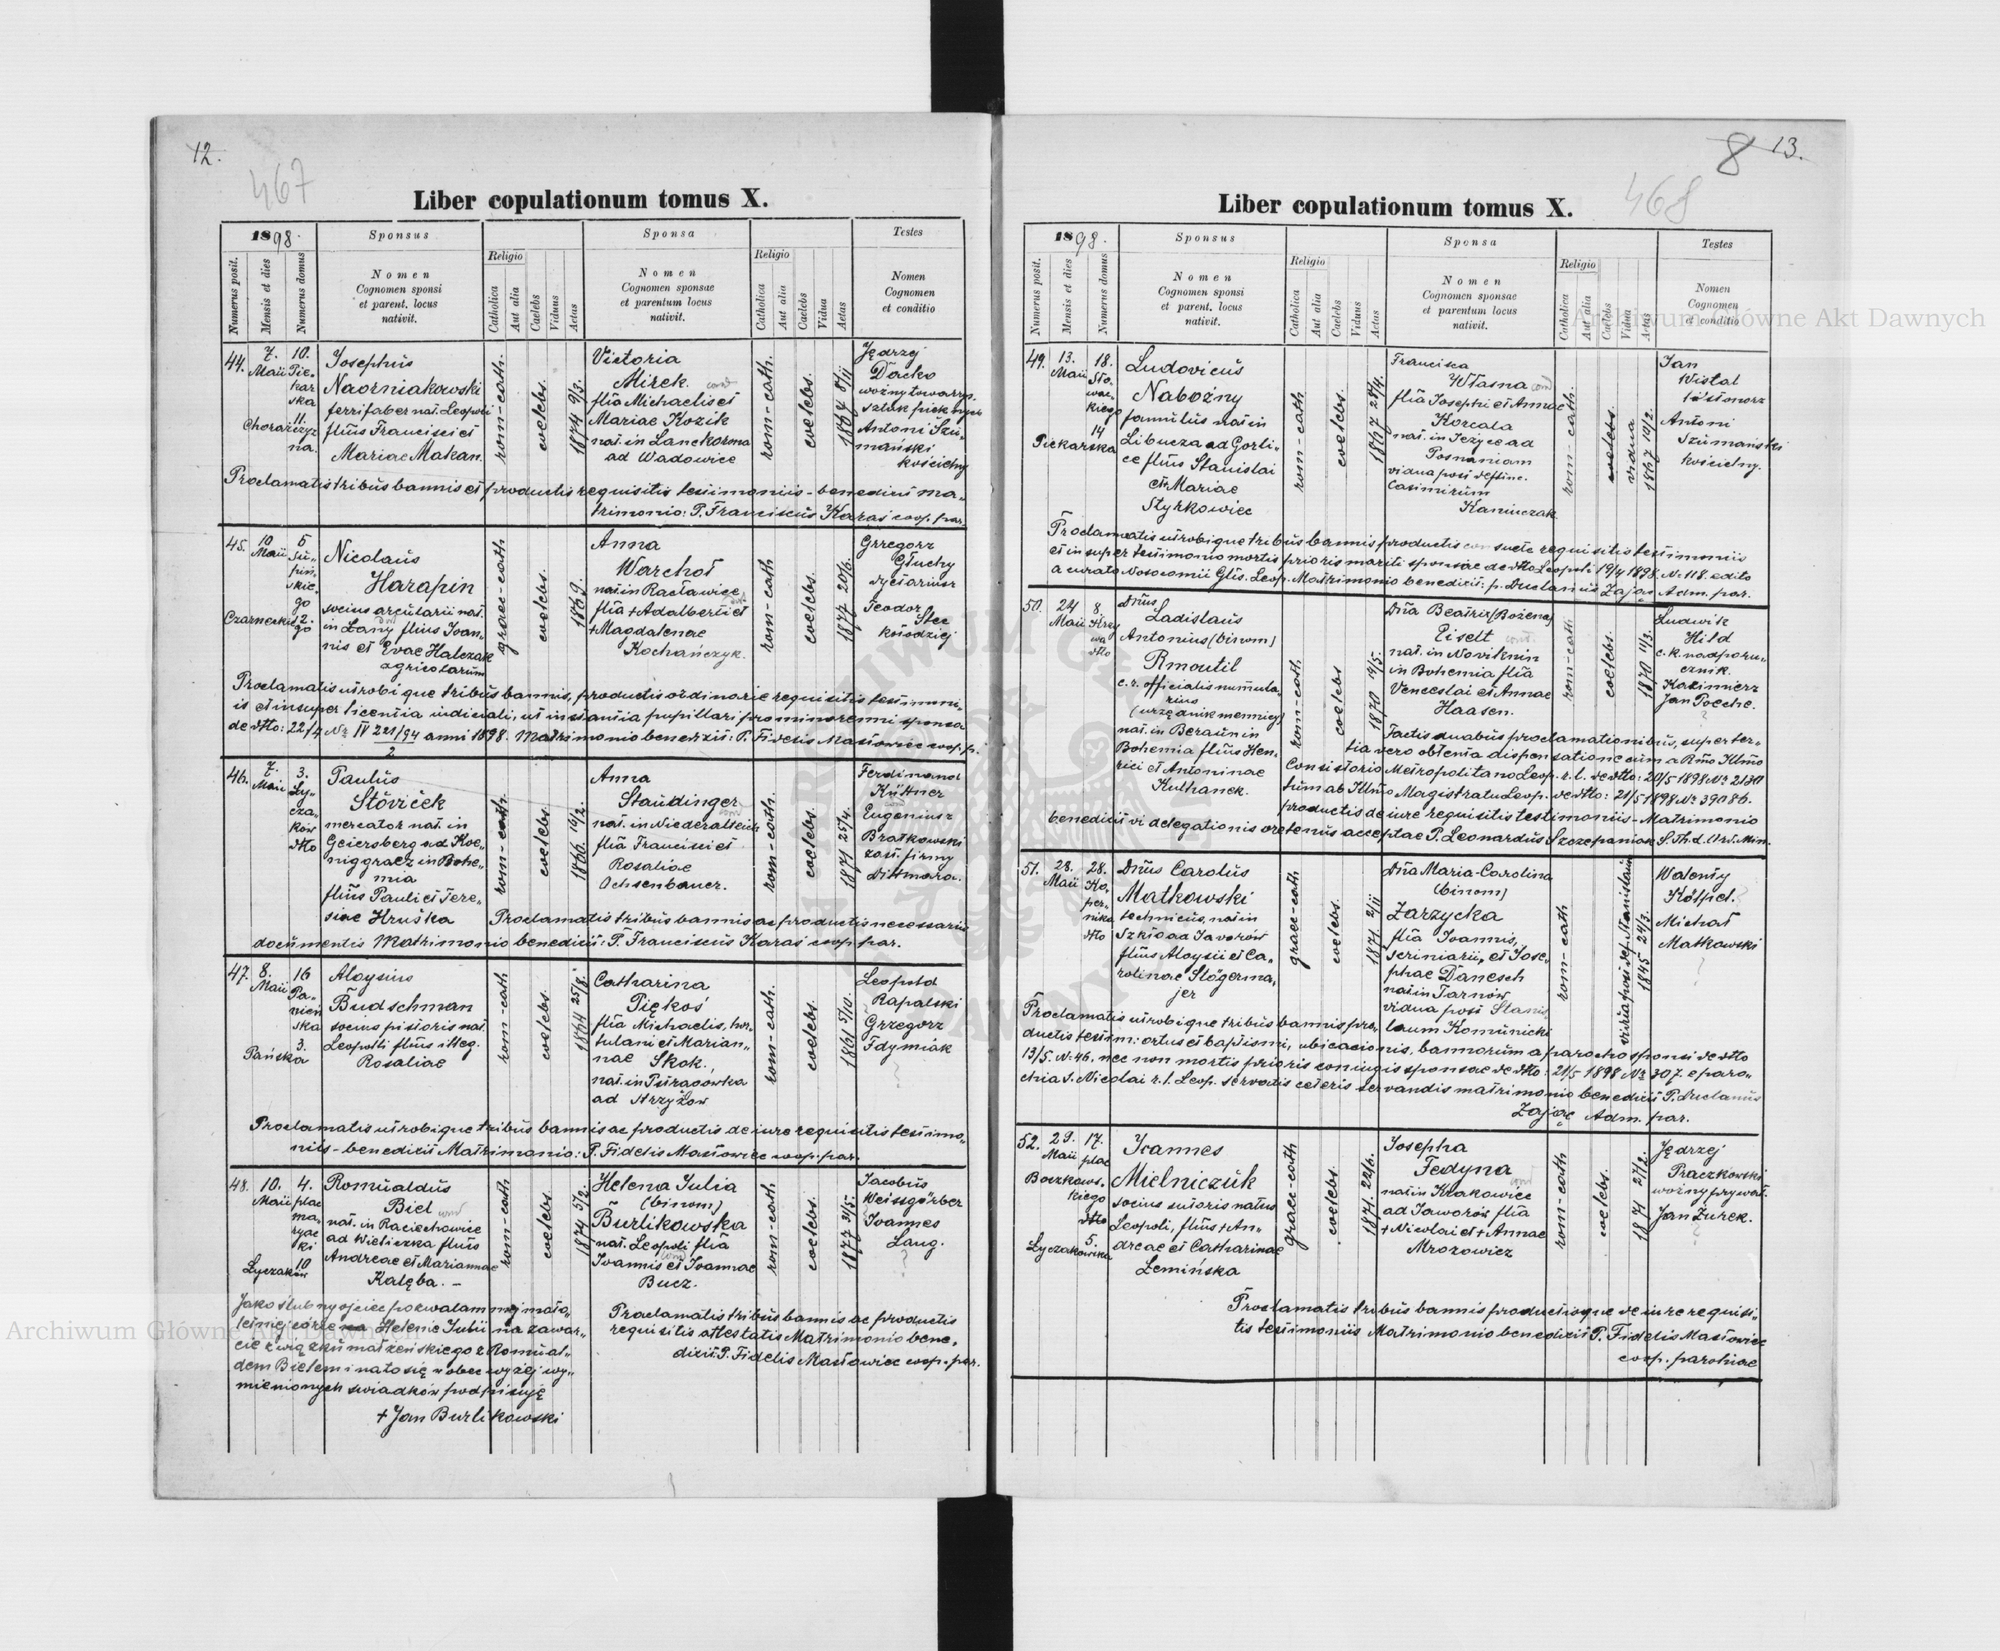 12.
467
Liber copulationum tomus X.
1898.
Sponsus
Sponsa
Testes
Numerus posit.
Mensis et dies
Numerus domus
Nomen
Cognomen sponsi
et parent. locus
nativit.
Religio
Catholica
Aut alia
Caelebs
Viduus
Aetas
Nomen
Cognomen sponsae
et parentum locus
nativit.
Religio
Catholica
Aut alia
Caelebs
Vidua
Aetas
Nomen
Cognomen
et conditio
44.
7.
Maii
10.
Pie-
kar
ska
11.
Chorąży-
na.
Josephus
Naorniakowski
ferrifaber nat. Leopoli
filius Francisci et
Mariae Makan.
rom-cath.
coelebs.
1874 9/3.
Victoria
Mirek.
filia Michaelis et
Mariae Kozik
nat. in Lanckorona
ad Wadowice
rom-cath.
coelebs.
1864 8/11
Jędrzej
Dacko
woźny towarzys.
sztuk pięknych
Antoni Szu-
mański
kościelny
Proclamatis tribus bannis et productis requisitis testimoniis - benedixit ma-
trimonio: P. Franciscus Karaś coop. par.
45.
10
Maii
5
Su-
piń-
skie-
go
Czarneckie
2.
go
Nicolaus
Harapin
socius arcularii nat.
in Łany filius Joan-
nis et Evae Halczak
agricolarum
graec-cath
coelebs.
1869.
Anna
Warchoł
nat. in Racławice
filia + Adalberti et
+ Magdalenae
Kochańczyk.
rom-cath
coelebs.
1877 20/6.
Grzegorz
Głuchy
dyetariusz
Teodor
Stec
kołodziej
Proclamatis utrobique tribus bannis, productis ordinarie requisitis testimoni-
is et insuper licentia iudiciali, ut instantia pupillari pro minorenni sponsa
de dtto: 22/4 Nr IV 221/94 anni 1898. Matrimonio benedixit: P. Fidelis Masłowiec coop. p.
2
46.
7.
Maii
3.
Ły-
cza-
ków
dtto
Paulus
Stöviček
mercator nat. in
Geiersberg ad Koe-
niggraez in Bohe-
mia
filius Pauli et Tere-
siae Hruška
rom-cath.
coelebs.
1866 16/2.
Anna
Staudinger
nat. in Niederaltteich
filia Francisci et
Rosaliae
Ochsenbauer.
rom-cath.
coelebs.
1871 25/4.
Ferdinand
Küttner
Eugeniusz
Bratkowski
zast. firmy
Dittmara.
Proclamatis tribus bannis ac productis necessariis
documentis Matrimonio benedixit: P. Franciscus Karaś coop. par.
47.
8.
Maii
16
Pa-
nień
ska
3.
Pańska
Aloysius
Budschman
socius pistoris nat.
Leopoli filius illeg.
Rosaliae
rom-cath
coelebs.
1864 25/8.
Catharina
Piękoś
filia Michaelis, hor-
tulani et Marian-
nae Skok.,
nat. in Pstrągówka
ad Strzyżów
rom-cath.
coelebs.
1861 5/10.
Leopold
Rapalski
Grzegorz
Fdymiak
?
Proclamatis utrobique tribus bannis ac productis de iure requisitis testimo-
niis - benedixit Matrimonio: P. Fidelis Masłowiec coop. par.
48.
10.
Maii
4.
plac
ma-
ryac
ki
10
Łyczaków
Romualdus
Biel
nat. in Raciechowice
ad Wieliczka filius
Andreae et Mariannae
Kalęba. -
rom-cath
coelebs.
1874 5/2.
Helena Julia
(binom)
Burlikowska
nat. Leopoli filia
Joannis et Joannae
Bucz.
rom-cath
coelebs.
1877 31/5.
Jacobus
Weissgärber
Joannes
Lang.
?
Jako ślubny ojciec pozwalam mej mało-
letniej córce Helenie Julii na zawar-
cie związku małżeńskiego z Romual-
dem Bielem i na to się w obec wyżej wy-
mienionych świadków podpisuję
+ Jan Burlikowski
Proclamatis tribus bannis ac productis
requisitis attestatis Matrimonio bene-
dixit P. Fidelis Masłowiec coop. par.
8
13.
468
Liber copulationum tomus X.
1898.
Sponsus
Sponsa
Testes
Numerus posit.
Mensis et dies
Numerus domus
Nomen
Cognomen sponsi
et parent. locus
nativit.
Religio
Catholica
Aut alia
Caelebs
Viduus
Aetas
Nomen
Cognomen sponsae
et parentum locus
nativit.
Religio
Catholica
Aut alia
Caelebs
Vidua
Aetas
Nomen
Cognomen
et conditio
49.
13.
Maii
18.
Sło-
wac-
kiego
14
Piekarska
Ludovicus
Nabożny
famulus nat. in
Libusza ad Gorli-
ce filius Stanislai
et Mariae
Styrkowiec
rom-cath
coelebs.
1867 28/4.
Francisca
Własna
filia Josephi et Annae
Korcala
nat. in Jeżyce ad
Posnaniam
vidua post defunc.
Casimirum
Kaniuczak
rom-cath.
coelebs.
vidua
1867 19/2.
Jan
Wistal
Antoni
Szumański
kościelny.
Proclamatis utrobique tribus bannis productis consuete requisitis testimoniis
et insuper testimonio mortis prioris mariti sponsae de dtto Leopoli 19/4 1898. N. 118. edito
a curato Nosocomii Glis. Leop. Matrimonio benedixit: p. Lucianus Zając Adm. par.
50.
24
Maii
8.
Krzy
wa
dtto
Dnus
Ladislaus
Antonius (binom)
Rmoutil
c.r. officialis numuta-
rius
(urzędnik mennicy)
nat. in Beraun in
Bohemia filius Hen-
rici et Antoninae
Kulhanek.
rom-cath
coelebs
1870 14/5.
Dna Beatrix (Bożena)
Eiselt
nat. in Noviknin
in Bohemia filia
Venceslai et Annae
Haasen.
rom-cath
coelebs.
1870 11/3.
Ludwik
Hild
c.k. nadporu-
cznik.
Kazimierz
Jan Poeche.
?
Factis duabus proclamationibus, super ter-
tia vero obtenta dispensatione cum a Rmo Illmo
Consistorio Metropolitano Leop. r. l. de dtto: 20/5 1898 Nr 2170
tum ab Illmo Magistratu Leop. de dtto: 21/5 1898 Nr 39086.
productis de iure requisitis testimoniis - Matrimonio
benedixit vi delegationis oretenus acceptae P. Leonardus Szczepaniak S. Th. d. Ord. Min.
51.
28.
Maii
28.
Ko-
per-
nika
dtto
Dnus Carolus
Matkowski
technicus, nat. in
Szkło ad Javorów
filius Aloysii et Ca-
rolinae Stögerma-
jer
graec-cath
coelebs.
1871. 2/11
Dna Maria-Carolina
(binom)
Zarzycka
filia Joannis,
scriniarii, et Jose-
phae Danesch
nat. in Tarnów
vidua post Stanis-
laum Komunicki
rom-cath
vidua post def. Stanislaum
1845 24/3.
Walenty
Kótpel.
Michał
Matkowski
?
Proclamatis utrobique tribus bannis, pro-
ductis testim: ortus et baptismi, ubicacionis, bannorum a parocho sponsi de dtto
13/5. N. 46, nec non mortis prioris coniugis sponsae de dtto: 21/5 1898 Nr 307. e paro-
chia S. Nicolai r. l. Leop. servatis ceteris servandis matrimonio benedixit P. Lucianus
Zając Adm. par.
52.
29.
Maii
17.
plac
Boczkows-
kiego
dtto
5.
Łyczakowska
Joannes
Mielniczuk
socius sutoris natus
Leopoli, filius + An-
dreae et Catharinae
Lemińska
graec-cath
coelebs.
1871. 22/6.
Josepha
Fedyna
nat. in Krakowiec
ad Jaworów filia
+ Nicolai et + Annae
Mrozowicz
rom-cath
coelebs.
1871 27/2.
Jędrzej
Praczkowski
woźny prywat.
Jan Żurek.
?
Proclamatis tribus bannis productisque de iure requisi-
tis testimoniis Matrimonio benedixit P. Fidelis Masłowiec
coop. parochiae
Archiwum Główne Akt Dawnych
Archiwum Główne Akt Dawnych